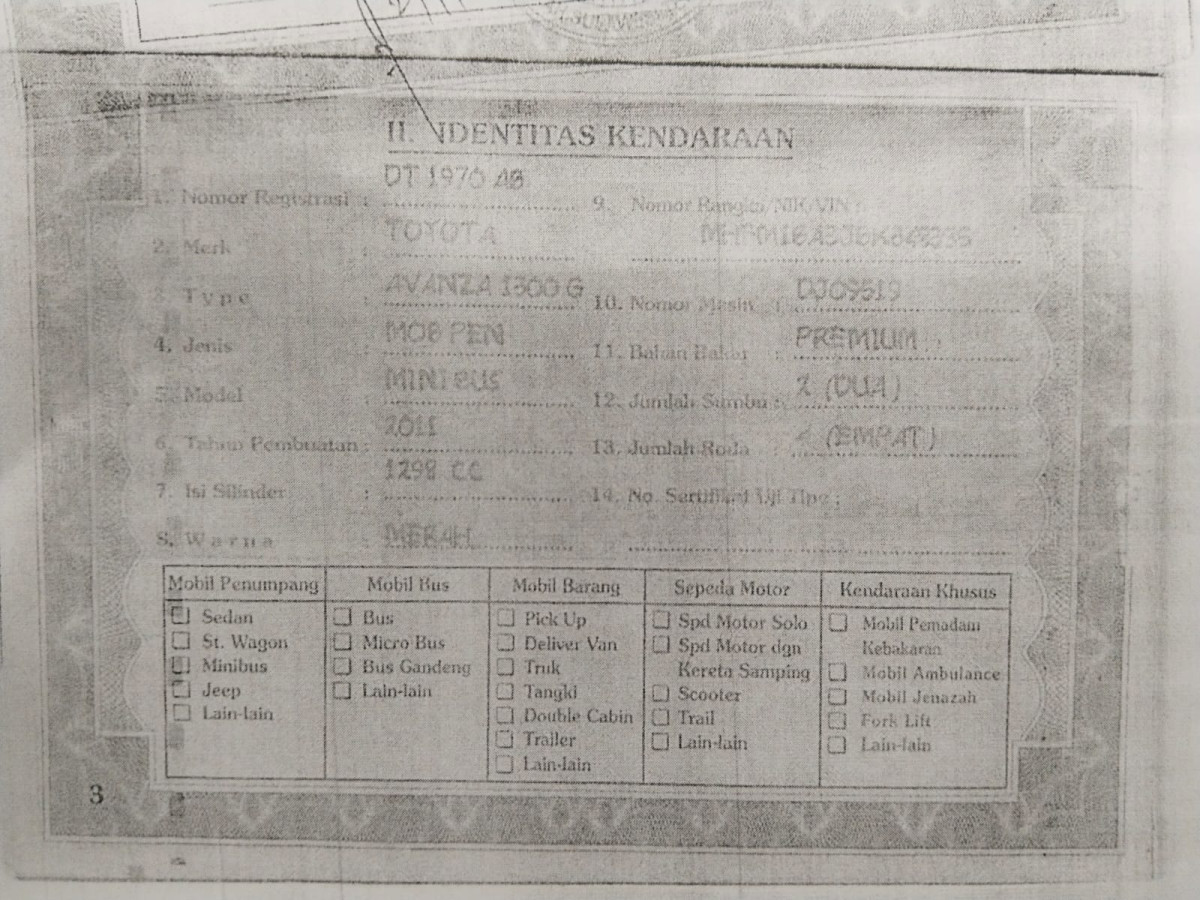 II. IDENTITAS KENDARAAN
1. Nomor Registrasi : DT 1970 AB
2. Merk TOYOTA
3. Type : AVANZA 1300 G
4. Jenis : MOB PEN
5. Model : MINIBUS
6. Tahun Pembuatan : 2011
7. Isi Silinder : 1298 CC
8. Warna : MERAH
9. Nomor Rangka/NIK/VIN :
10. Nomor Mesin :
11. Bahan Bakar : PREMIUM
12. Jumlah Sumbu : 2 (DUA)
13. Jumlah Roda : (EMPAT)
14. No. Sertifikat Uji Tipe :
Mobil Penumpang
Sedan
St. Wagon
Minibus
Jeep
Lain-lain
Mobil Bus
Bus
Micro Bus
Bus Gandeng
Lain-lain
Mobil Barang
Pick Up
Deliver Van
Truk
Tangki
Double Cabin
Trailer
Lain-lain
Sepeda Motor
Spd Motor Solo
Spd Motor dgn
Kereta Samping
Scooter
Trail
Lain-lain
Kendaraan Khusus
Mobil Pemadam
Kebakaran
Mobil Ambulance
Mobil Jenazah
Fork Lift
Lain-lain
3